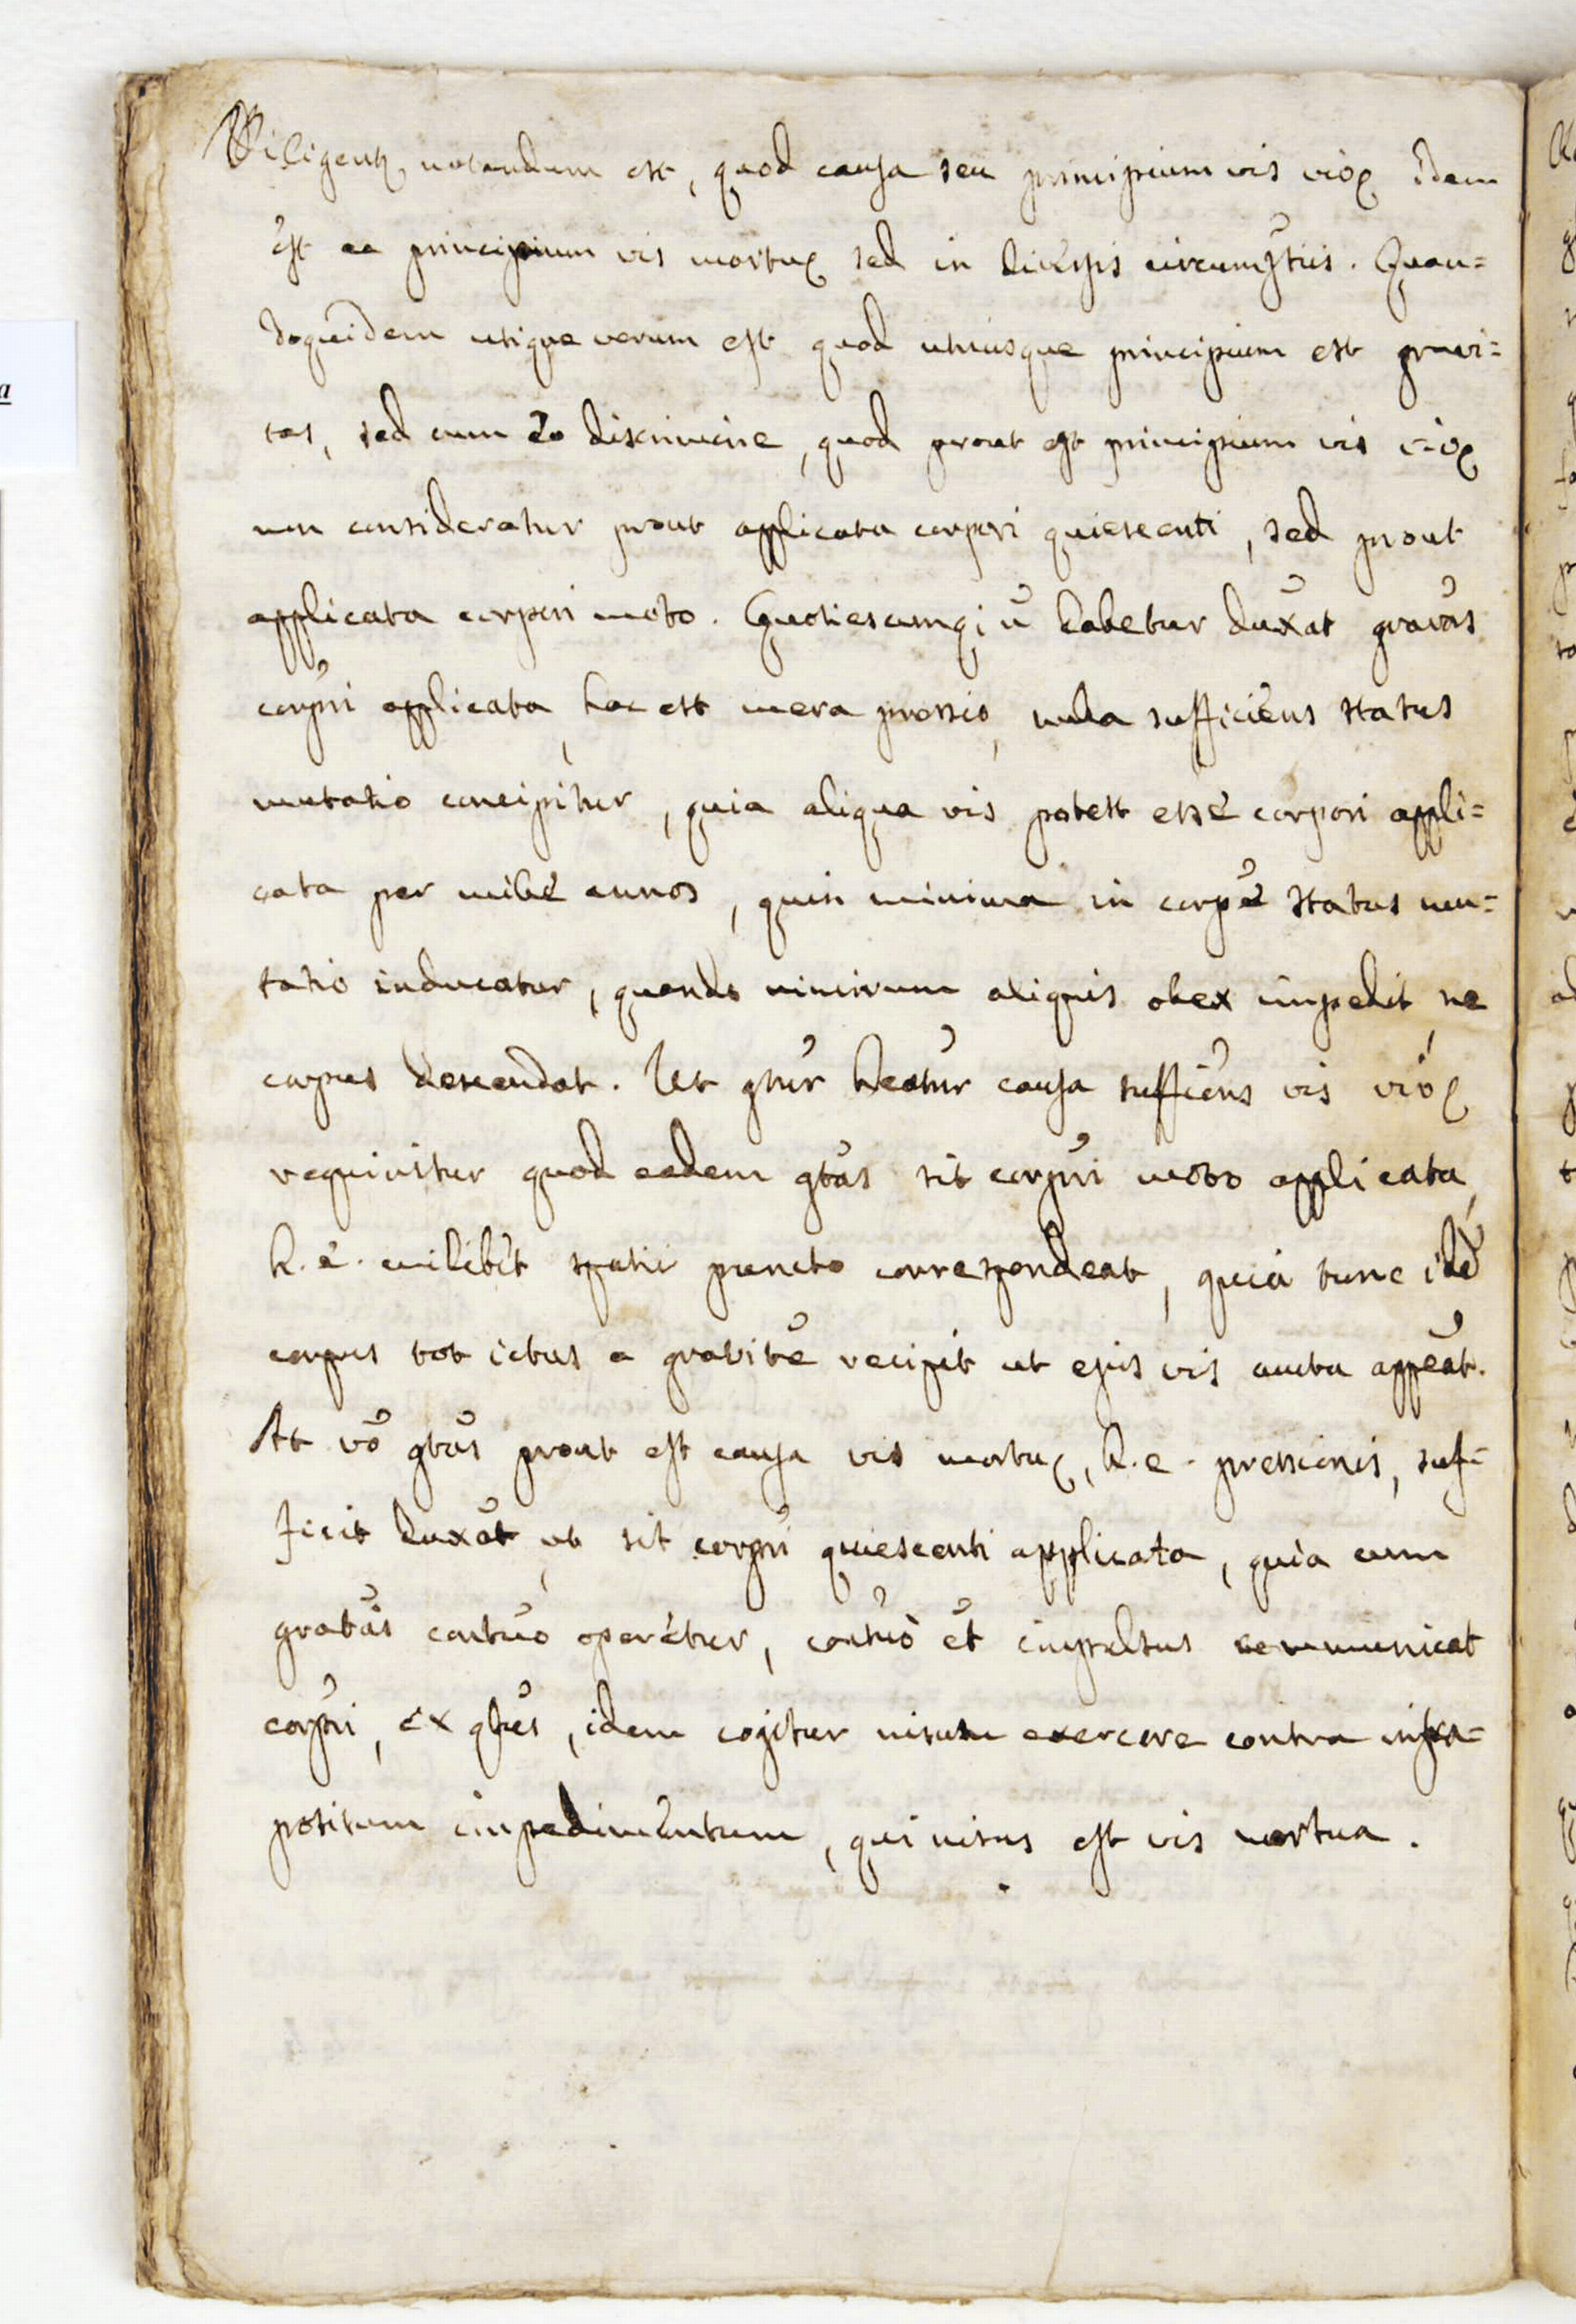 Diligentę notandum est, quod causa seu principium vis vivę idem
est ac principium vis mortuę sed in divērsis circumstīis. Quan=
doquidem utique verum est quod utriusque principium est gravi=
tas, sed cum eo discrimine, quod prout est principium vis vivę
non consideratur prout applicata corpori quiescenti, sed prout
applicata corpori moto. Quotiescumq; ū habetur duxāt gravās
corpri applicata, hoc est mera pressio, nulla sufficiens status
mutatio concipitur, quia aliqua vis potest esse corpori appli=
cata per mille annos, quin minima in corpē status mu=
tatio inducatur, quando nimirum aliquis obex impedit, ne
corpus descendat. Ut gtur heatur causa sufficiens vis vivę
requiritur quod eadem gtās sit corpri moto applicata,
h. e. cuilibet spatii puncto correspondeat, quia tunc ille
corpus tot ictus a gravitē recipit ut ejus vis aucta appeāt.
At vō gtās prout est causa vis mortuę, h. e. pressionis, suf=
ficit duxāt, ut sit corpri quiescenti applicata, quia cum
gravtās contuo operetur, contuo ēt impulsus communicat
corpri, ex qbus, idem cogitur nisum exercere contra
positum impedimentum, qui nisus est vis mortua.
a